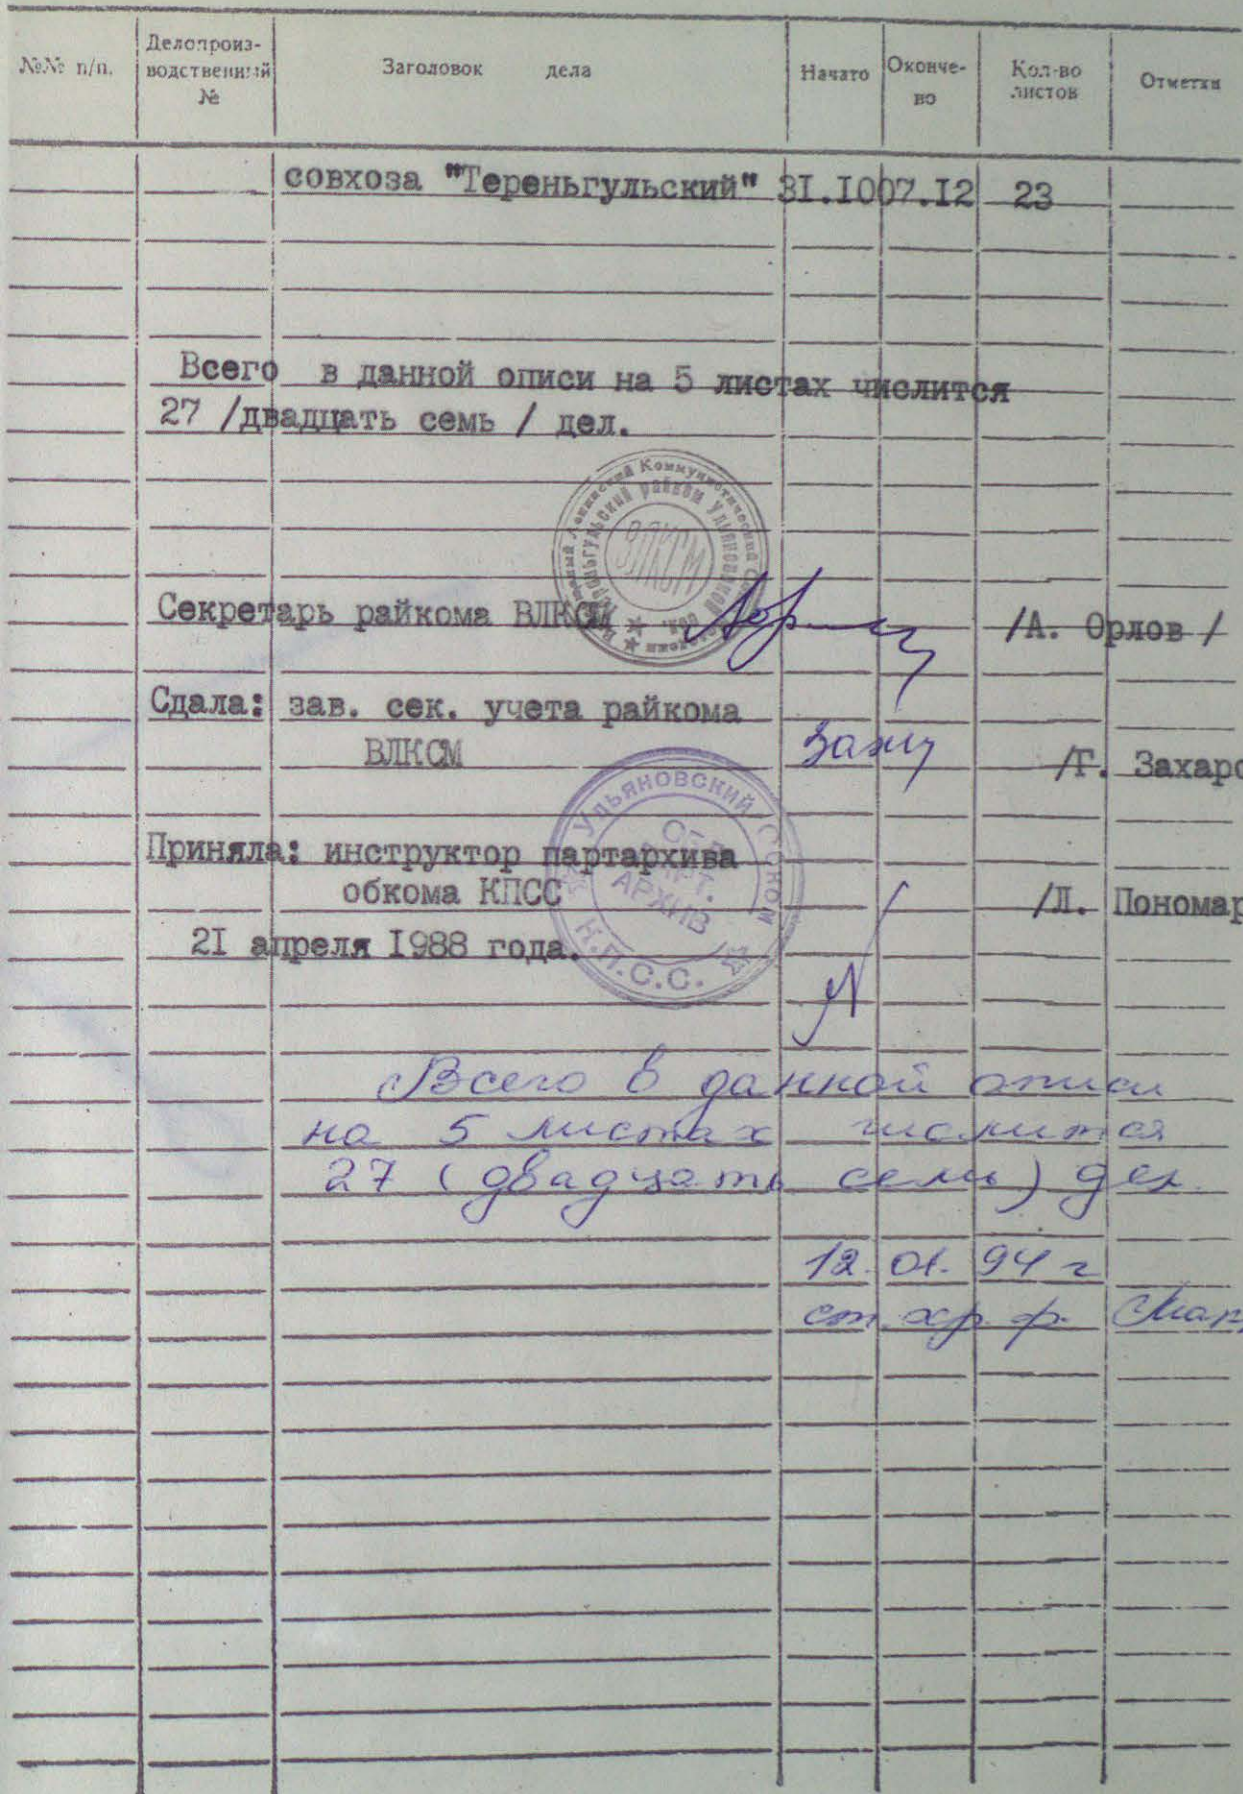 №№ п/п. Делопроиз-водственный № Заголовок дела Начато Окончено Кол-во листов Отметки
совхоза "Тереньгульский" 31.10 07.12 23
Всего в данной описи на 5 листах числится
27 /двадцать семь / дел.
ВЛКСМ
Секретарь райкома ВЛКСМ /А. Орлов /
Сдала: зав. сек. учета райкома
ВЛКСМ /Г. Захаро
Ульяновский Обком
К.П.С.С.
АРХИВ
Приняла: инструктор партархива
обкома КПСС /Л. Пономар
21 апреля 1988 года.
Всего в данной описи
на 5 листах числится
27 (двадцать семь) дел.
12.01.94 г
ст. хр. ф.